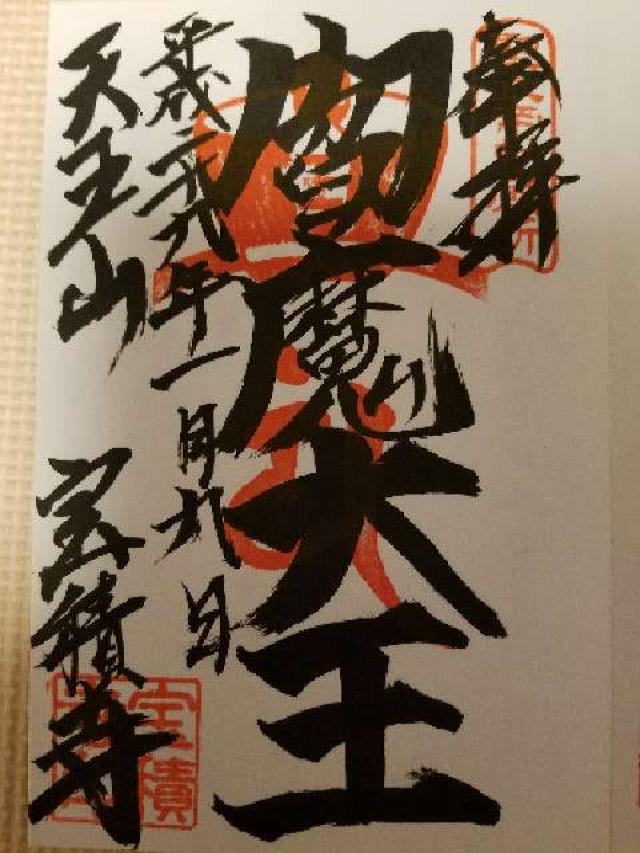 奉拝
閻魔大王
平成二十九年一月九日
天王山
宝積寺
宝積